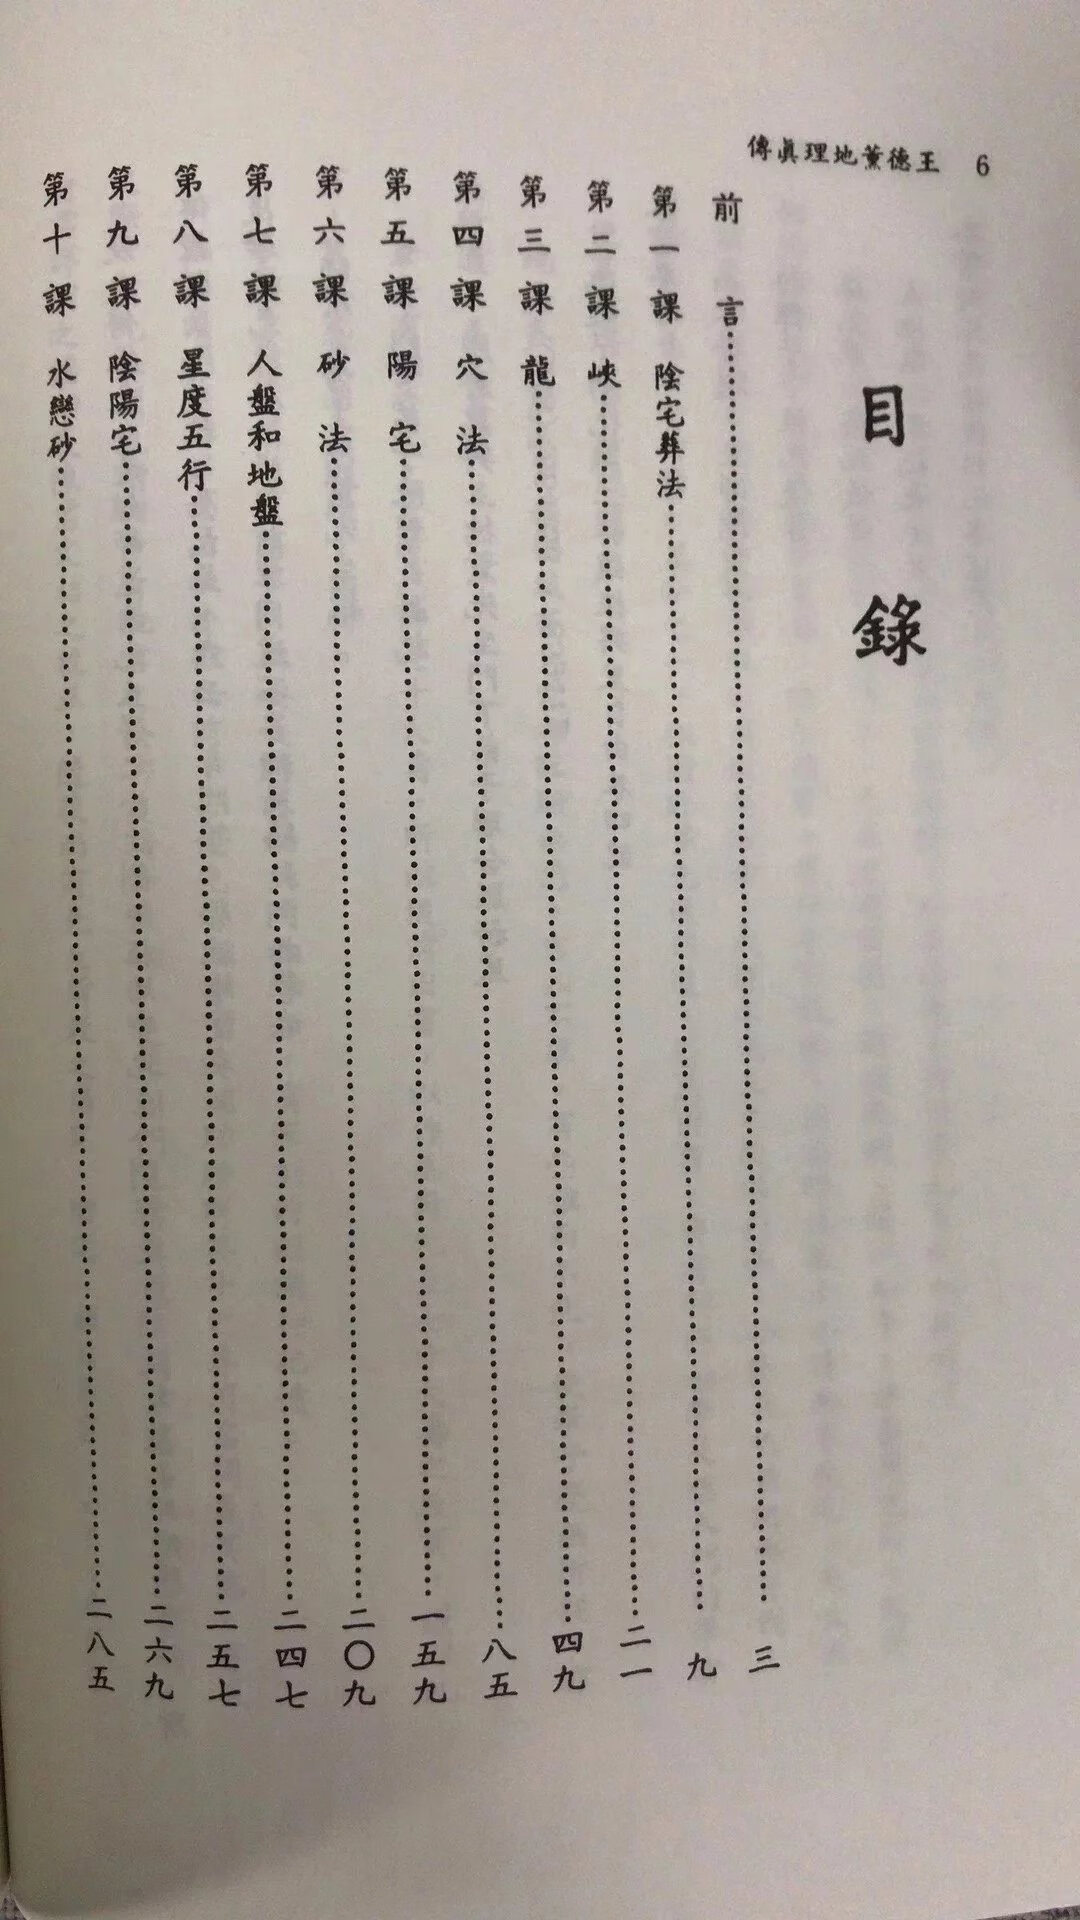 6
王德薰地理眞傳
目錄
前言……三
第一課 陰宅葬法……九
第二課 峽……二一
第三課 龍……四九
第四課 穴法……八五
第五課 陽宅……一五九
第六課 砂法……二〇九
第七課 人盤和地盤……二四七
第八課 星度五行……二五七
第九課 陰陽宅……二六九
第十課 水戀砂……二八五